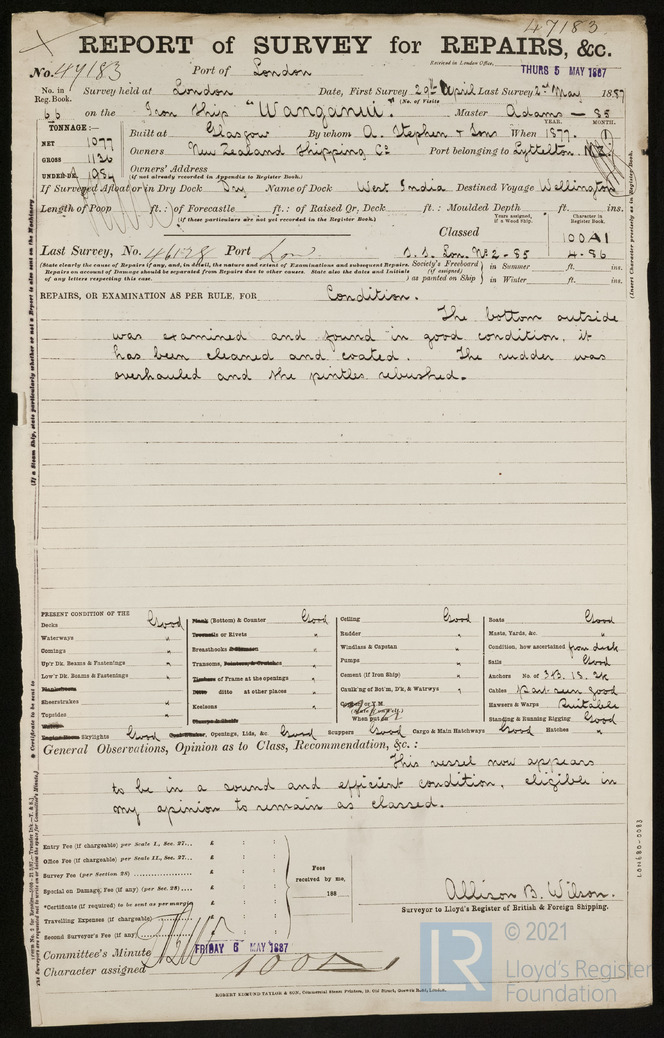 47183
REPORT of SURVEY for REPAIRS, &c.
Received in London Office,
No. 47183 Port of London THURS 5 MAY 1887
No. in Reg. Book. Survey held at London Date, First Survey 29th April Last Survey 2nd May 1887
(No. of Visits
66 on the Iron Ship "Wanganui." Master Adams — 85
YEAR. MONTH.
TONNAGE:— Built at Glasgow By whom A. Stephen & Sons When 1877.
NET 1077
GROSS 1136 Owners New Zealand Shipping Co Port belonging to Lyttelton. N.Z.
UNDER DK. 1054 Owners' Address
(if not already recorded in Appendix to Register Book.)
If Surveyed Afloat or in Dry Dock Dry Name of Dock West India Destined Voyage Wellington
Length of Poop ft.: of Forecastle ft.: of Raised Qr. Deck ft.: Moulded Depth ft. ins.
(if these particulars are not yet recorded in the Register Book.)
Years assigned, if a Wood Ship.
Character in Register Book.
Classed 100A1
Last Survey, No. 46128 Port Lon S.S. Lon. No 2 - 85 4 - 86
(State clearly the cause of Repairs if any, and, in detail, the nature and extent of Examinations and subsequent Repairs.
Repairs on account of Damage should be separated from Repairs due to other causes. State also the dates and Initials
of any letters respecting this case.
Society's Freeboard (if assigned) as painted on Ship
in Summer ft. ins.
in Winter ft. ins.
REPAIRS, OR EXAMINATION AS PER RULE, FOR Condition.
The bottom outside
was examined and found in good condition, it
has been cleaned and coated. The rudder was
overhauled and the pintles rebushed.
PRESENT CONDITION OF THE
Decks Good
Waterways "
Comings "
Up'r Dk. Beams & Fastenings "
Low'r Dk. Beams & Fastenings "
Sheerstrakes "
Topsides "
Skylights Good
Plank (Bottom) & Counter Good
Treenails or Rivets "
Breasthooks "
Transoms, Pointers, & Crutches "
Timbers of Frame at the openings "
Ditto ditto at other places "
Keelsons "
Openings, Lids, &c. Good
Ceiling Good
Rudder "
Windlass & Capstan "
Pumps "
Cement (if Iron Ship) "
Caulk'ng of Bot'm, D'k, & Waterw'ys "
When put on
Scuppers Good
Boats Good
Masts, Yards, &c. "
Condition, how ascertained from deck
Sails Good
Anchors No. of 3.B. 1S. 2K
Cables Part seen good
Hawsers & Warps Suitable
Standing & Running Rigging Good
Cargo & Main Hatchways Good Hatches "
General Observations, Opinion as to Class, Recommendation, &c.:
This vessel now appears
to be in a sound and efficient condition, eligible in
my opinion to remain as classed.
Entry Fee (if chargeable) per Scale I., Sec. 27... £ : :
Office Fee (if chargeable) per Scale II., Sec. 27... £ : :
Survey Fee (per Section 28) £ : :
Special on Damage Fee (if any) (per Sec. 28) £ : :
*Certificate (if required) to be sent as per margin £ : :
Travelling Expenses (if chargeable) £ : :
Second Surveyor's Fee (if any) £ : :
Fees received by me, 188
Allison B. Wilson.
Surveyor to Lloyd's Register of British & Foreign Shipping.
Committee's Minute FRIDAY 6 MAY 1887
Character assigned 100A1
ROBERT EDMUND TAYLOR & SON, Commercial Steam Printers, 19, Old Street, Goswell Road, London.
(If a Steam Ship, state particularly whether or not a Report is also sent on the Machinery.
* Certificate to be sent to
(Insert Character precisely as in Register Book.
LON680-0083
LR
© 2021
Lloyd's Register
Foundation